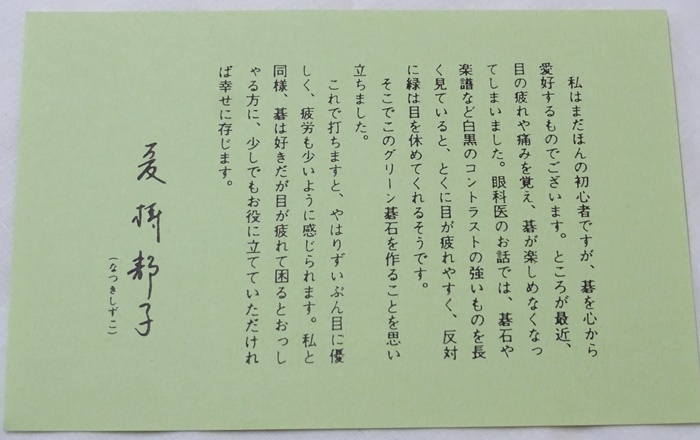 私はまだほんの初心者ですが、碁を心から
愛好するものでございます。ところが最近、
目の疲れや痛みを覚え、碁が楽しめなくなっ
てしまいました。眼科医のお話では、碁石や
楽譜など白黒のコントラストの強いものを長
く見ていると、とくに目が疲れやすく、反対
に緑は目を休めてくれるそうです。
そこでこのグリーン碁石を作ることを思い
立ちました。
これで打ちますと、やはりずいぶん目に優
しく、疲労も少いように感じられます。私と
同様、碁は好きだが目が疲れて困るとおっし
ゃる方に、少しでもお役に立てていただけれ
ば幸せに存じます。
夏樹静子
(なつきしずこ)